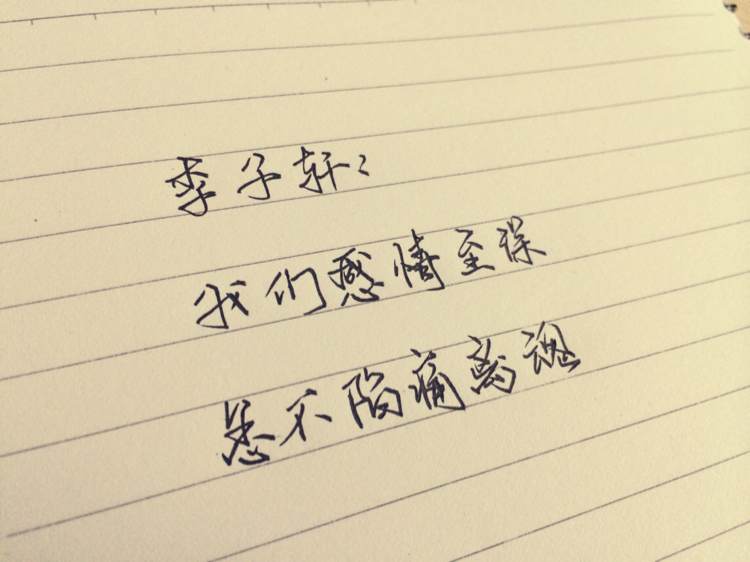 李子轩:
我们感情至深
悉不陷痛离魂